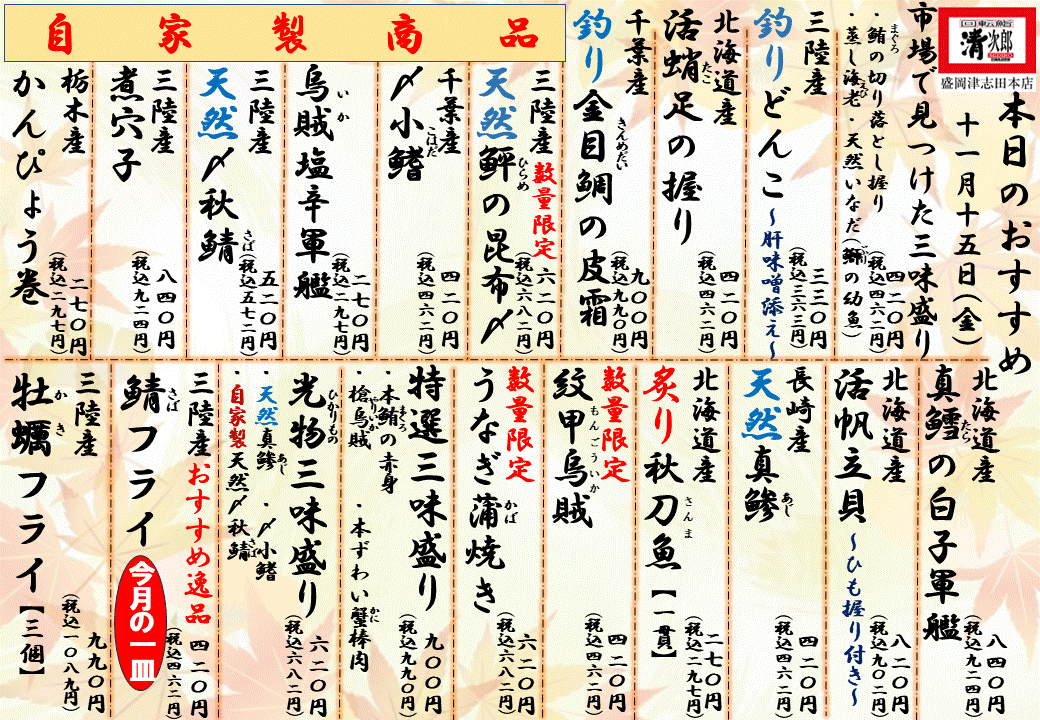 回転鮨
清次郎
盛岡津志田本店
本日のおすすめ
十一月十五日(金)
市場で見つけた三味盛り
・鮪の切り落とし握り
まぐろ
・蒸し海老・天然いなだ(鰤の幼魚)
えび
四二〇円
(税込四六二円)
三陸産
釣りどんこ~肝味噌添え~
三三〇円
(税込三六三円)
北海道産
活蛸足の握り
たこ
四二〇円
(税込四六二円)
千葉産
釣り金目鯛の皮霜
きんめだい
九〇〇円
(税込九九〇円)
自家製商品
三陸産
数量限定
天然鮃の昆布〆
ひらめ
六二〇円
(税込六八二円)
千葉産
〆小鰭
こはだ
四二〇円
(税込四六二円)
烏賊塩辛軍艦
いか
二七〇円
(税込二九七円)
三陸産
天然〆秋鯖
さば
五二〇円
(税込五七二円)
三陸産
煮穴子
八四〇円
(税込九二四円)
栃木産
かんぴょう巻
二七〇円
(税込二九七円)
北海道産
真鱈の白子軍艦
たら
八四〇円
(税込九二四円)
北海道産
活帆立貝~ひも握り付き~
八二〇円
(税込九〇二円)
長崎産
天然真鯵
あじ
四二〇円
(税込四六二円)
北海道産
炙り秋刀魚【一貫】
さんま
二七〇円
(税込二九七円)
数量限定
紋甲烏賊
もんごういか
四二〇円
(税込四六二円)
数量限定
うなぎ蒲焼き
かば
六二〇円
(税込六八二円)
特選三味盛り
・本鮪の赤身
まぐろ
・本ずわい蟹棒肉
かに
・槍烏賊
やりいか
九〇〇円
(税込九九〇円)
光物三味盛り
ひかりもの
・天然真鯵
あじ
・〆小鰭
・自家製天然〆秋鯖
さば
六二〇円
(税込六八二円)
三陸産おすすめ逸品
鯖フライ
さば
今月の一皿
四二〇円
(税込四六二円)
三陸産
牡蠣フライ【三個】
かき
九九〇円
(税込一〇八九円)